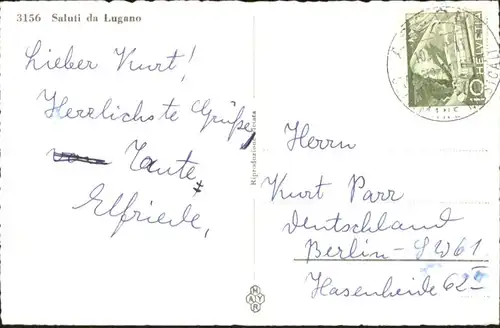 3156 Saluti da Lugano
Lieber Kurt!
Herzlichste Grüße,
Tante
Elfriede,
Riproduzione vietata
HELVETIA
10
Herrn
Kurt Parr
Deutschland
Berlin-SW61
Hasenheide 62 I